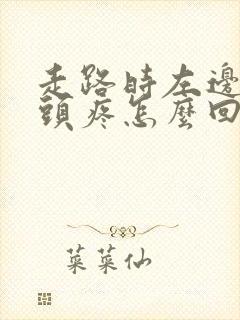 走路時左邊
頭疼怎麼回
菜菜仙